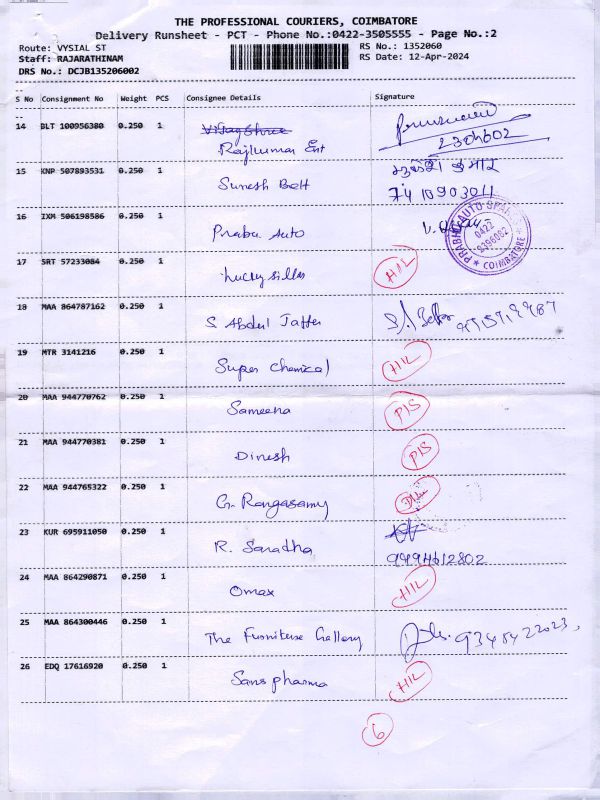 THE PROFESSIONAL COURIERS, COIMBATORE
Delivery Runsheet - PCT - Phone No.:0422-3505555 - Page No.:2
Route: VYSIAL ST
RS No.: 1352060
Staff: RAJARATHINAM
RS Date: 12-Apr-2024
DRS No.: DCJB135206002
S No Consignment No Weight PCS Consignee Details Signature
14 BLT 100956380 0.250 1
Rajkumar Ent
2304602
15 KNP 507893531 0.250 1 Suresh Belt
7410903011
16 IXM 506198586 0.250 1 Prabu Auto
PRABHU AUTO SPARES
0422
2396082
* COIMBATORE *
17 SRT 57233084 0.250 1 Lucky silks H/L
18 MAA 864787162 0.250 1 S Abdul Jaffer
19 MTR 3141216 0.250 1 Super Chemical H/L
20 MAA 944770762 0.250 1 Sameena P/S
21 MAA 944770381 0.250 1 Dinesh P/S
22 MAA 944765322 0.250 1 G. Rangasamy
23 KUR 695911050 0.250 1 R. Saradha
9494612802
24 MAA 864290871 0.250 1 Omax H/L
25 MAA 864300446 0.250 1 The Furniture Gallery
26 EDQ 17616920 0.250 1 Sans pharma H/L
6